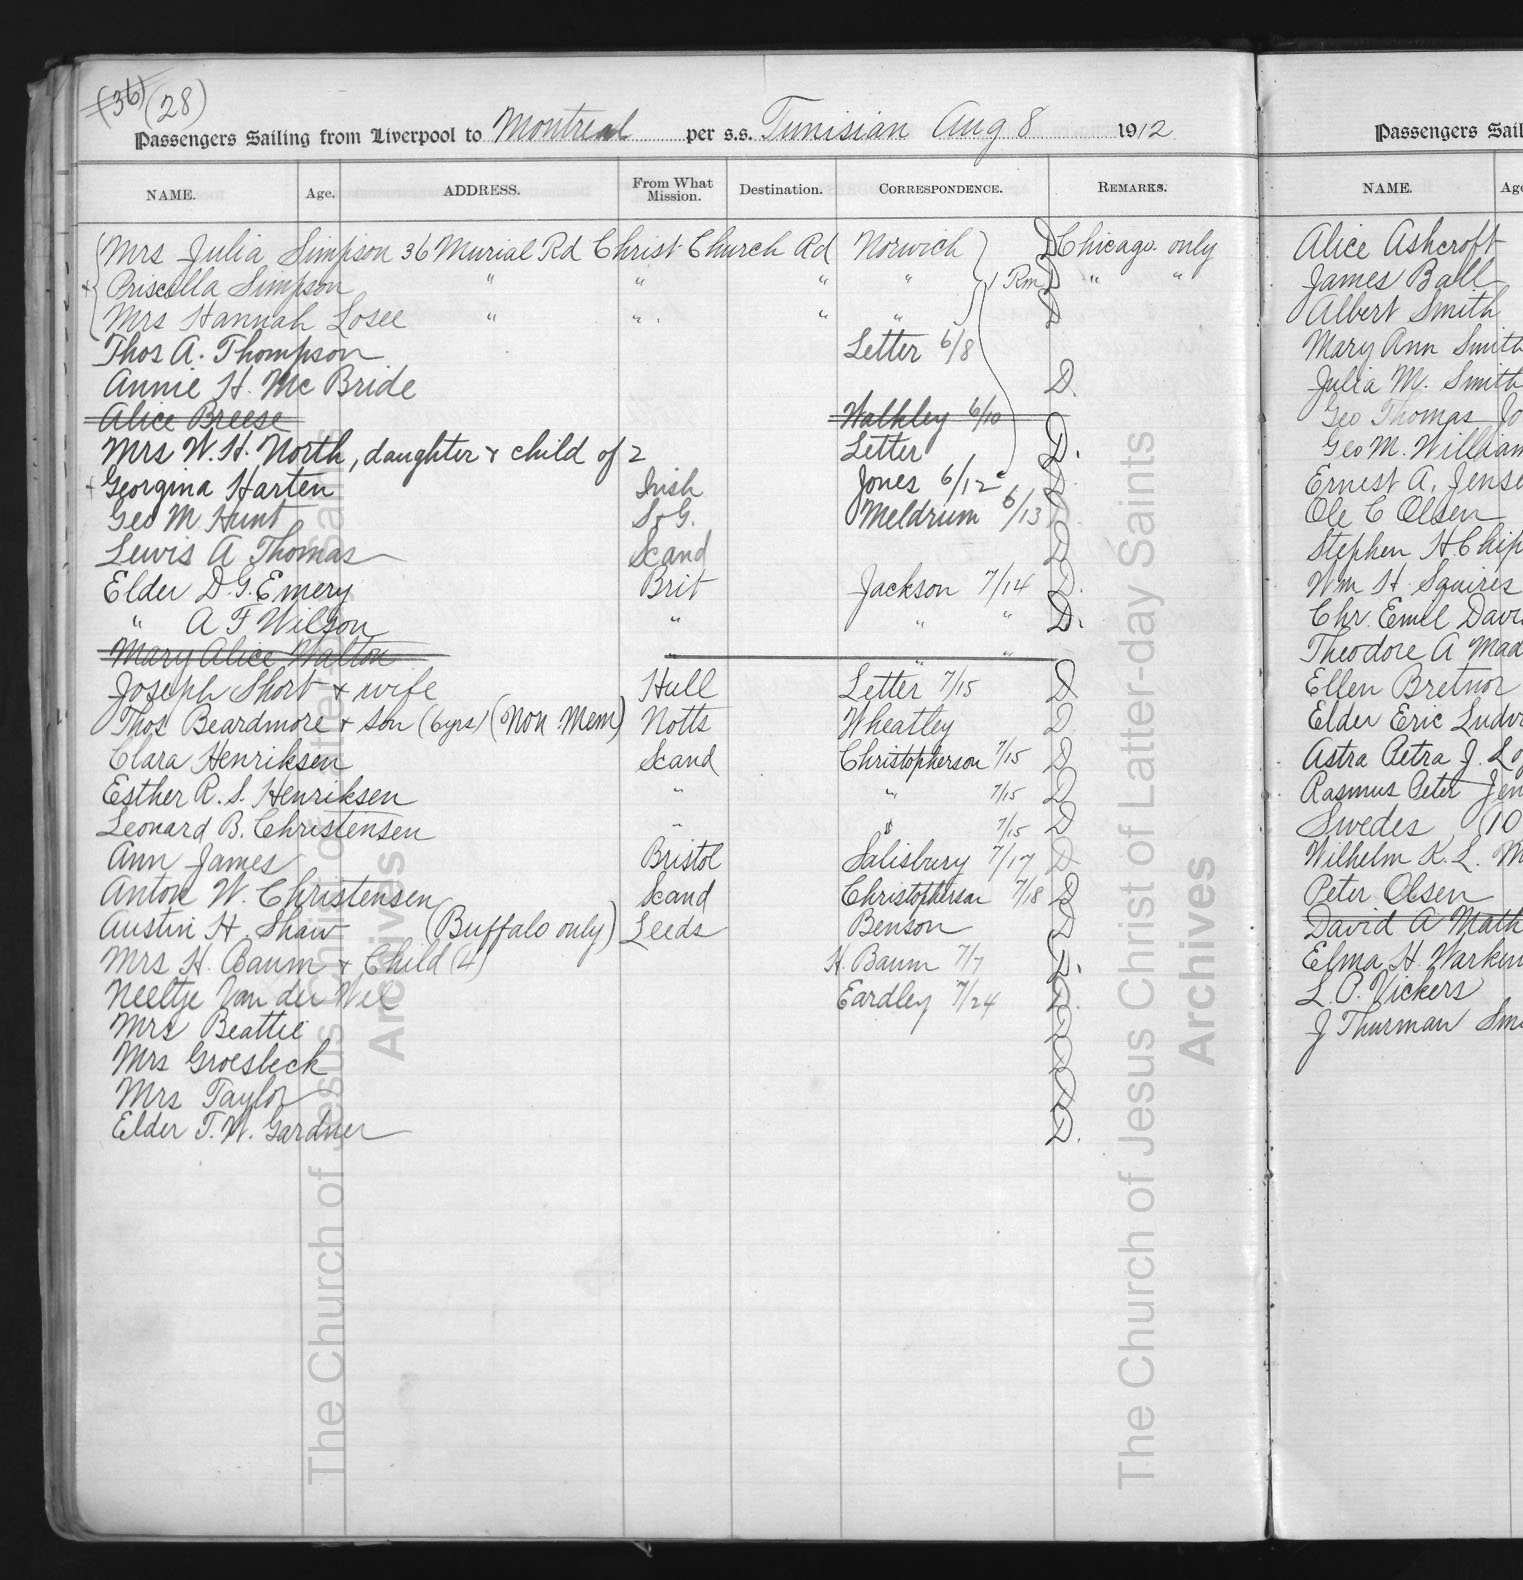 (36) (28)
Passengers Sailing from Liverpool to Montreal per s.s. Tunisian Aug 8 1912
NAME. Age. ADDRESS. From What Mission. Destination. CORRESPONDENCE. REMARKS.
Mrs Julia Simpson 36 Murial Rd Christ Church Rd Norwich D Chicago only
Priscilla Simpson " " " " 1 Rm D " "
Mrs Hannah Losee " " " " D
Thos A. Thompson Letter 6/8
Annie H. McBride D.
Alice Breese Walkley 6/10
Mrs W. H. North, daughter & child of 2 Letter D.
Georgina Harten Irish Jones 6/12
Geo M Hunt S&G. Meldrum 6/13
Lewis A Thomas Scand D
Elder D. G. Emery Brit Jackson 7/14 D.
" A F Wilson " " " D.
Mary Alice Walton " " "
Joseph Short & wife Hull Letter 7/15 D
Thos Beardmore & Son (6yrs) (Non Mem) Notts Wheatley D
Clara Henriksen Scand Christopherson 7/15 D
Esther R. S. Henriksen " " 7/15 D
Leonard B. Christensen " " 7/15 D
Ann James Bristol Salisbury 7/17 D
Anton W. Christensen Scand Christopherson 7/18 D
Austin H. Shaw (Buffalo only) Leeds Benson D
Mrs H. Baum & Child (4) H. Baum 7/7 D
Neeltje Van der Wel Eardley 7/24 D.
Mrs Beattie D
Mrs Groesbeck D
Mrs Taylor D
Elder T. W. Gardner D.
Passengers Sail
NAME. Age
Alice Ashcroft
James Ball
Albert Smith
Mary Ann Smith
Julia M. Smith
Geo Thomas Jo
Geo M. William
Ernest A. Jense
Ole C Olsen
Stephen H Chip
Wm H. Squires
Chr. Emil Davi
Theodore A Mad
Ellen Bretnor
Elder Eric Ludvi
Astra Petra J. Lo
Rasmus Peter Jen
Swedes (10
Wilhelm K. L. M
Peter Olsen
David A Math
Elma H. Warken
L. P. Vickers
J Thurman Smi
The Church of Jesus Christ of Latter-day Saints
Archives
The Church of Jesus Christ of Latter-day Saints
Archives